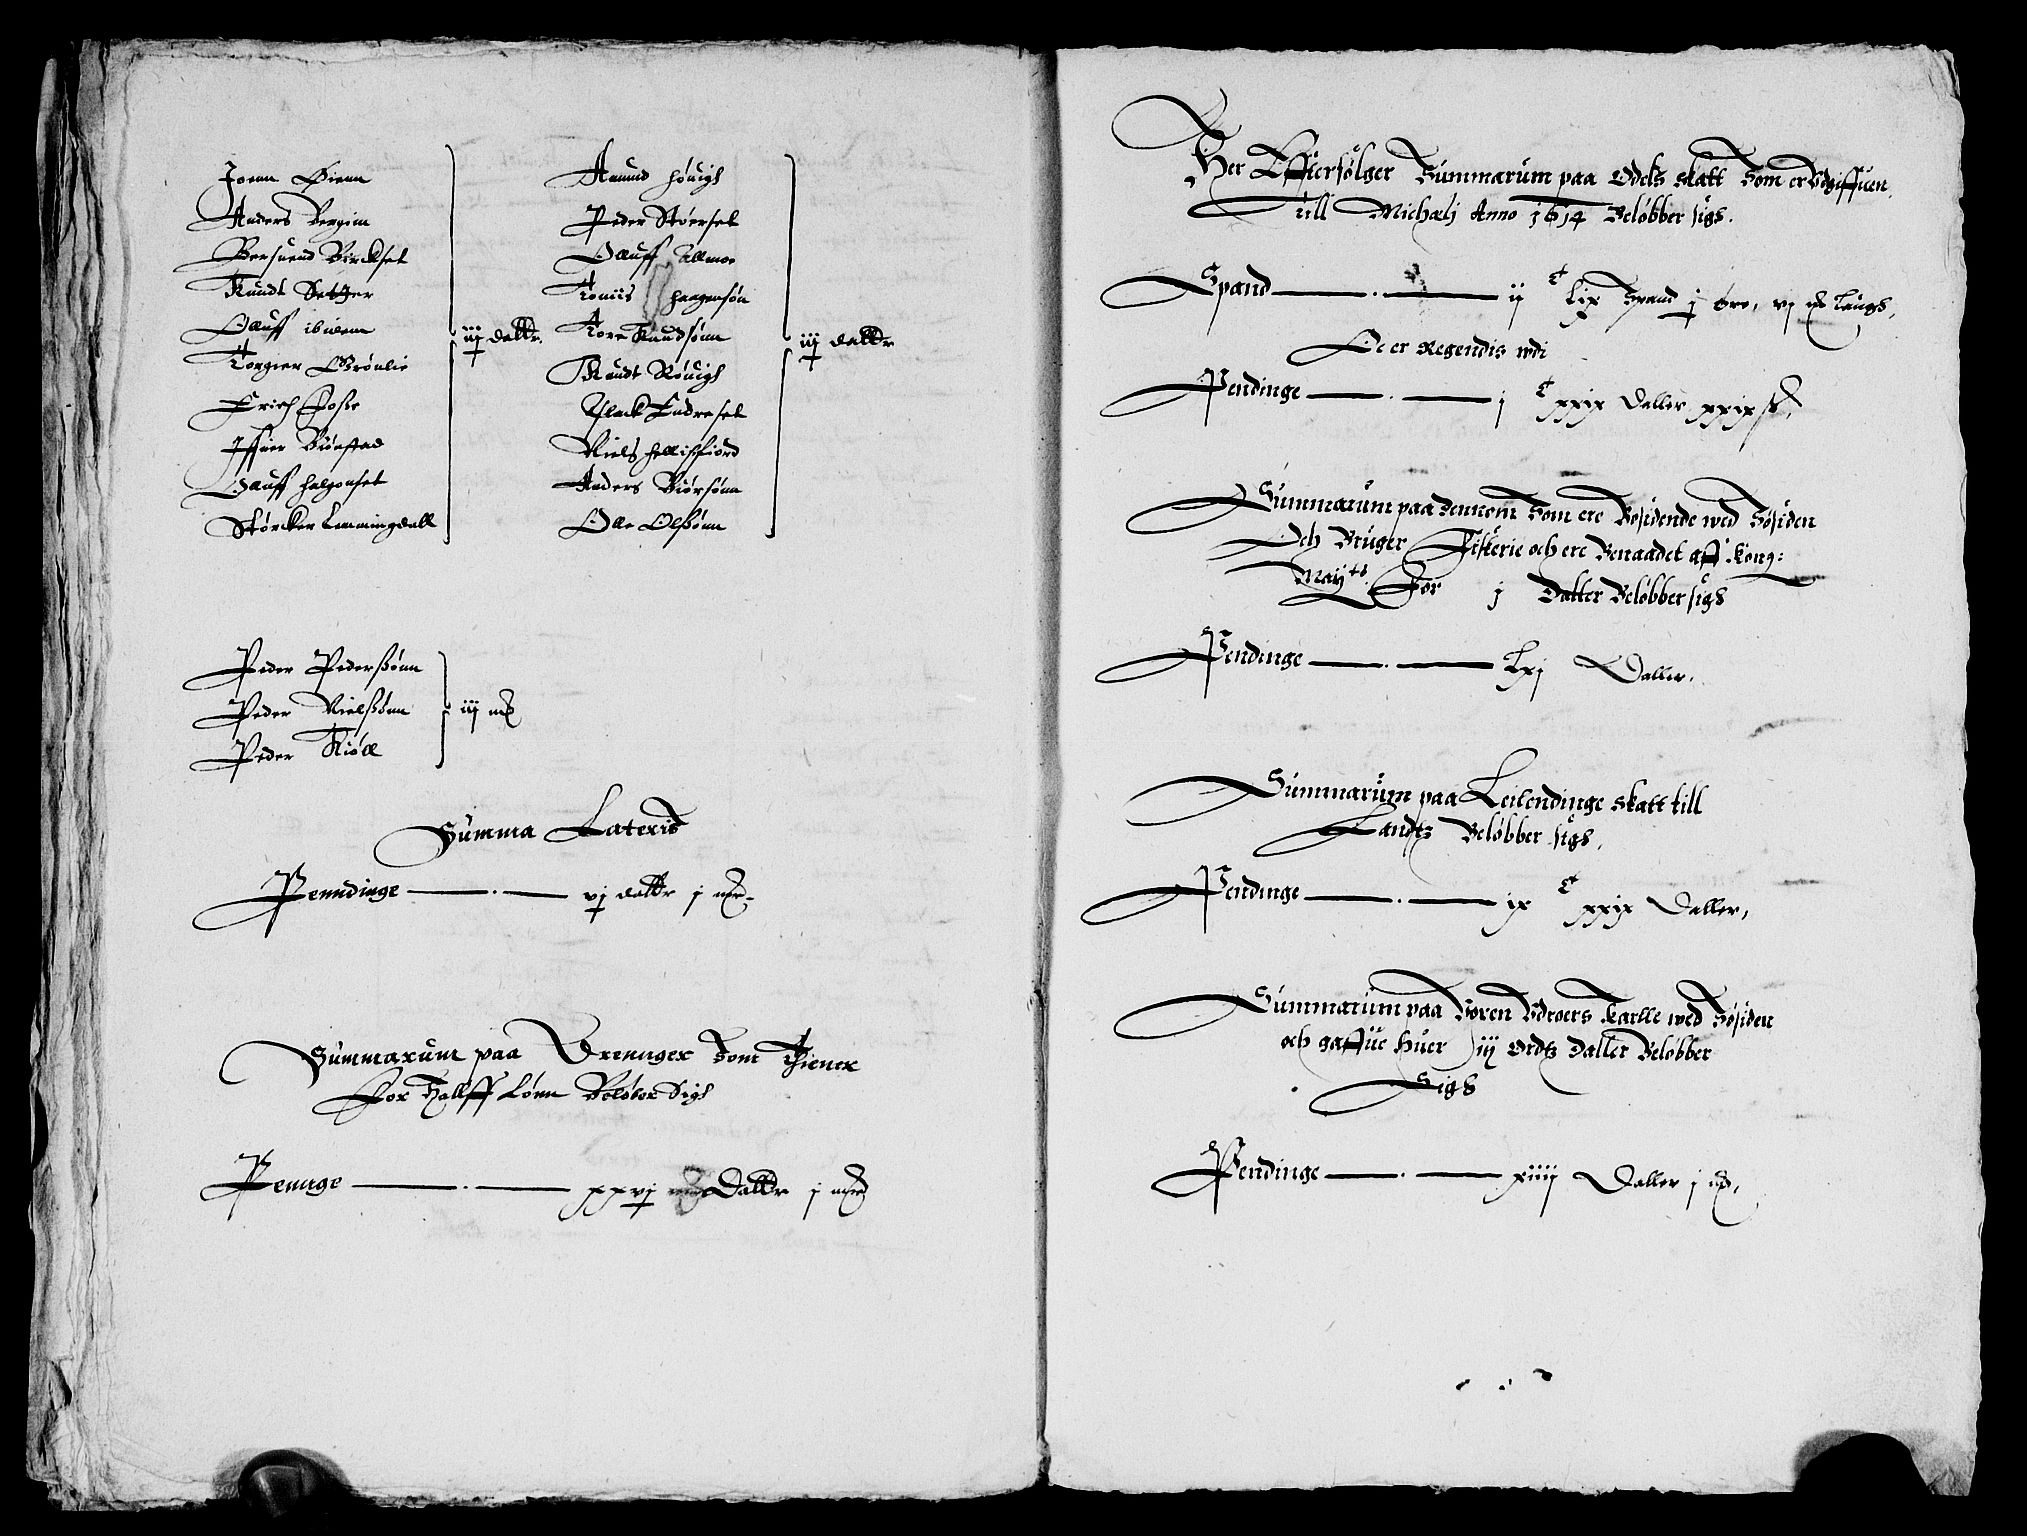 Joenn Öienn
Anders Bergim
Bersuend Birckset
Knudt Setzer
Olluff ibidem
Torgier Grönlie
Erich Fosse
Iffuer
Olluff halgonset
Störcker Lemmingdall
iij dalltr.
Amund höuigh
Peder Störset
Olluff Allmoe
Tomiis haagensön
Tore Knudsönn
Knudt Röuigh
Islack Endreset
Niels hellisfiord
Anders Biörsönn
Olle Olsönn
iij dalltr
Peder Pedersönn
Peder Nielssönn
Peder Kiöll
iij mk
Summa Lateris
Penndinge vj daltr j mk
Summarum paa Drennger Som Thiener
For Hallff Lönn Belöber Sigh
Pennge xxvj Dalltr j mk
Her Effterfölger Summarum paa Odels skatt Som er Vdgiffuen
Till Michaelj Anno 1614 Belöbber sigh.
Spand ij C Lix Spand j öre, vj mk laugh,
De er Regendis udi
Pendinge j C xxix Daller xxix sk,
Summarum paa dennem Som ere Bosidende wed Søsiden
Och Bruger Fiskerie och ere Benaadet aff Kong:
Maytt. For j Daller Beløbber sigh
Pendinge Lxj Daller.
Summarum paa Leilendinge skatt till
Landtz Beløbber sigh,
Pendinge ix C xxix Daller,
Summarum paa Boren Vdroers Karlle wed Søsiden
och gaffue huer iij Ordtz daller Beløbber
Sigh
Pendinge xiiij Daller j mk,